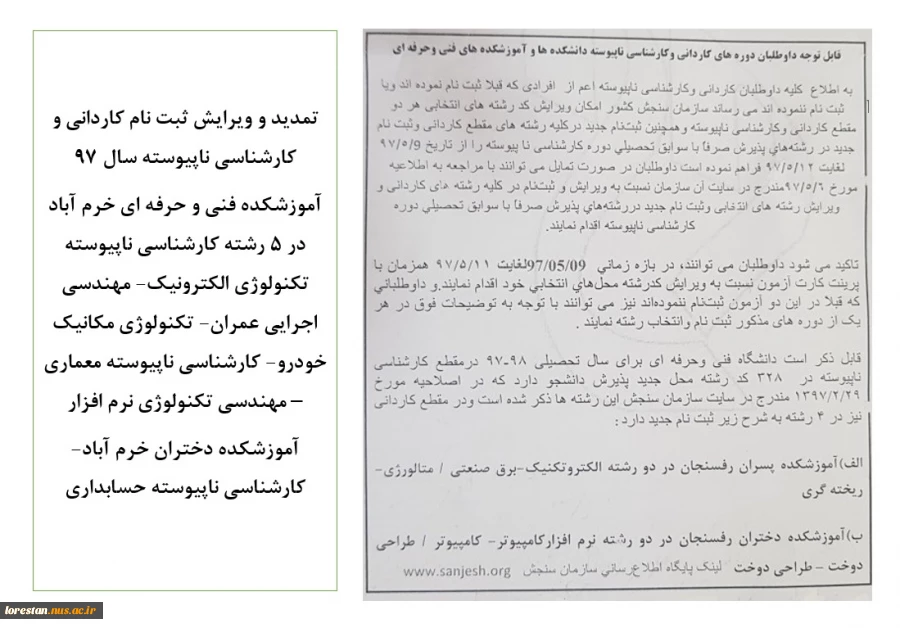 قابل توجه داوطلبان دوره های کاردانی وکارشناسی ناپیوسته دانشکده ها و آموزشکده های فنی وحرفه ای
به اطلاع کلیه داوطلبان کاردانی وکارشناسی ناپیوسته اعم از افرادی که قبلا ثبت نام نموده اند ویا
ثبت نام ننموده اند می رساند سازمان سنجش کشور امکان ویرایش کد رشته های انتخابی هر دو
مقطع کاردانی وکارشناسی ناپیوسته وهمچنین ثبت‌نام جدید درکلیه رشته های مقطع کاردانی وثبت نام
جدید در رشته‌هاي پذیرش صرفاً با سوابق تحصیلي دوره کارشناسی نا پیوسته را از تاریخ 97/5/9
لغایت ۹۷/۵/۱۲ فراهم نموده است داوطلبان در صورت تمایل می توانند با مراجعه به اطلاعیه
مورخ ۹۷/۵/۶مندرج در سایت آن سازمان نسبت به ویرایش و ثبت‌نام در کلیه رشته های کاردانی و
ویرایش رشته های انتخابی وثبت نام جدید دررشته‌هاي پذیرش صرفاً با سوابق تحصیلي دوره
کارشناسی ناپیوسته اقدام نمایند.
تاکید می شود داوطلبان می توانند، در بازه زماني 97/05/09لغایت ۹۷/۵/۱۱ همزمان با
پرینت کارت آزمون نسبت به ویرایش کدرشته محل‌هاي انتخابي خود اقدام نمایند.و داوطلباني
که قبلا در این دو آزمون ثبت‌نام ننموده‌اند نیز می توانند با توجه به توضیحات فوق در هر
یک از دوره های مذکور ثبت نام وانتخاب رشته نمایند .
قابل ذکر است دانشگاه فنی وحرفه ای برای سال تحصیلی ۹۸-۹۷ درمقطع کارشناسی
ناپیوسته در ۳۲۸ کد رشته محل جدید پذیرش دانشجو دارد که در اصلاحیه مورخ
۱۳۹۷/۲/۲۹ مندرج در سایت سازمان سنجش این رشته ها ذکر شده است ودر مقطع کاردانی
نیز در ۴ رشته به شرح زیر ثبت نام جدید دارد:
الف)آموزشکده پسران رفسنجان در دو رشته الکتروتکنیک-برق صنعتی / متالورژی-
ریخته گری
ب)آموزشکده دختران رفسنجان در دو رشته نرم افزارکامپیوتر- کامپیوتر / طراحی
دوخت – طراحی دوخت لینک پایگاه اطلاع‌رساني سازمان سنجش www.sanjesh.org
تمدید و ویرایش ثبت نام کاردانی و
کارشناسی ناپیوسته سال ۹۷
آموزشکده فنی و حرفه ای خرم آباد
در ۵ رشته کارشناسی ناپیوسته
تکنولوژی الکترونیک- مهندسی
اجرایی عمران- تکنولوژی مکانیک
خودرو- کارشناسی ناپیوسته معماری
– مهندسی تکنولوژی نرم افزار
آموزشکده دختران خرم آباد-
کارشناسی ناپیوسته حسابداری
lorestan.nus.ac.ir